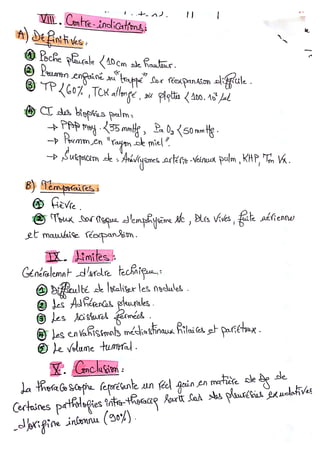 VIII. Contre-indications:
A) Définitives:
① Poche pleurale < 10cm de hauteur.
② Poumon engainé ou "trappé" car réexpansion difficile.
③ TP < 60%, TCK allongé, ou plqttes < 100.10³/ul
④ CI des biopsies pulm:
→ PAP moy. < 35 mmHg, Pa O₂ < 50 mmHg.
→ Poumon en "rayon de miel".
→ Suspicion de: Anévrysmes artério-veineux pulm, KHP, Tm Vx.
B) Temporaires:
① Fièvre.
② Toux car risque d'emphysème sc, Dlrs vives, fuite aérienne
et mauvaise réexpansion.
IX. Limites:
Généralement d'ordre technique:
① Difficulté de localiser les nodules.
② Les Adhérences pleurales.
③ Les scissures fermées.
④ Les envahissements médiastinaux hilaires et pariétaux.
⑤ Le volume tumoral.
X. Conclusion:
La thoracoscopie représente un réel gain en matière de Dg de
Certaines pathologies intra-thoracq surtt cas des pleurésies exsudatives
d'origine inconnue (90%).